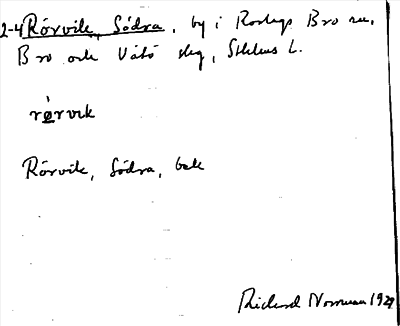 2-4 Rörvik, Södra, by i Roslags Bro sn,
Bro och Vätö skg, Sthlms L.
rørvɩk
Rörvik, Södra, bete
Rickard Norrman 1929